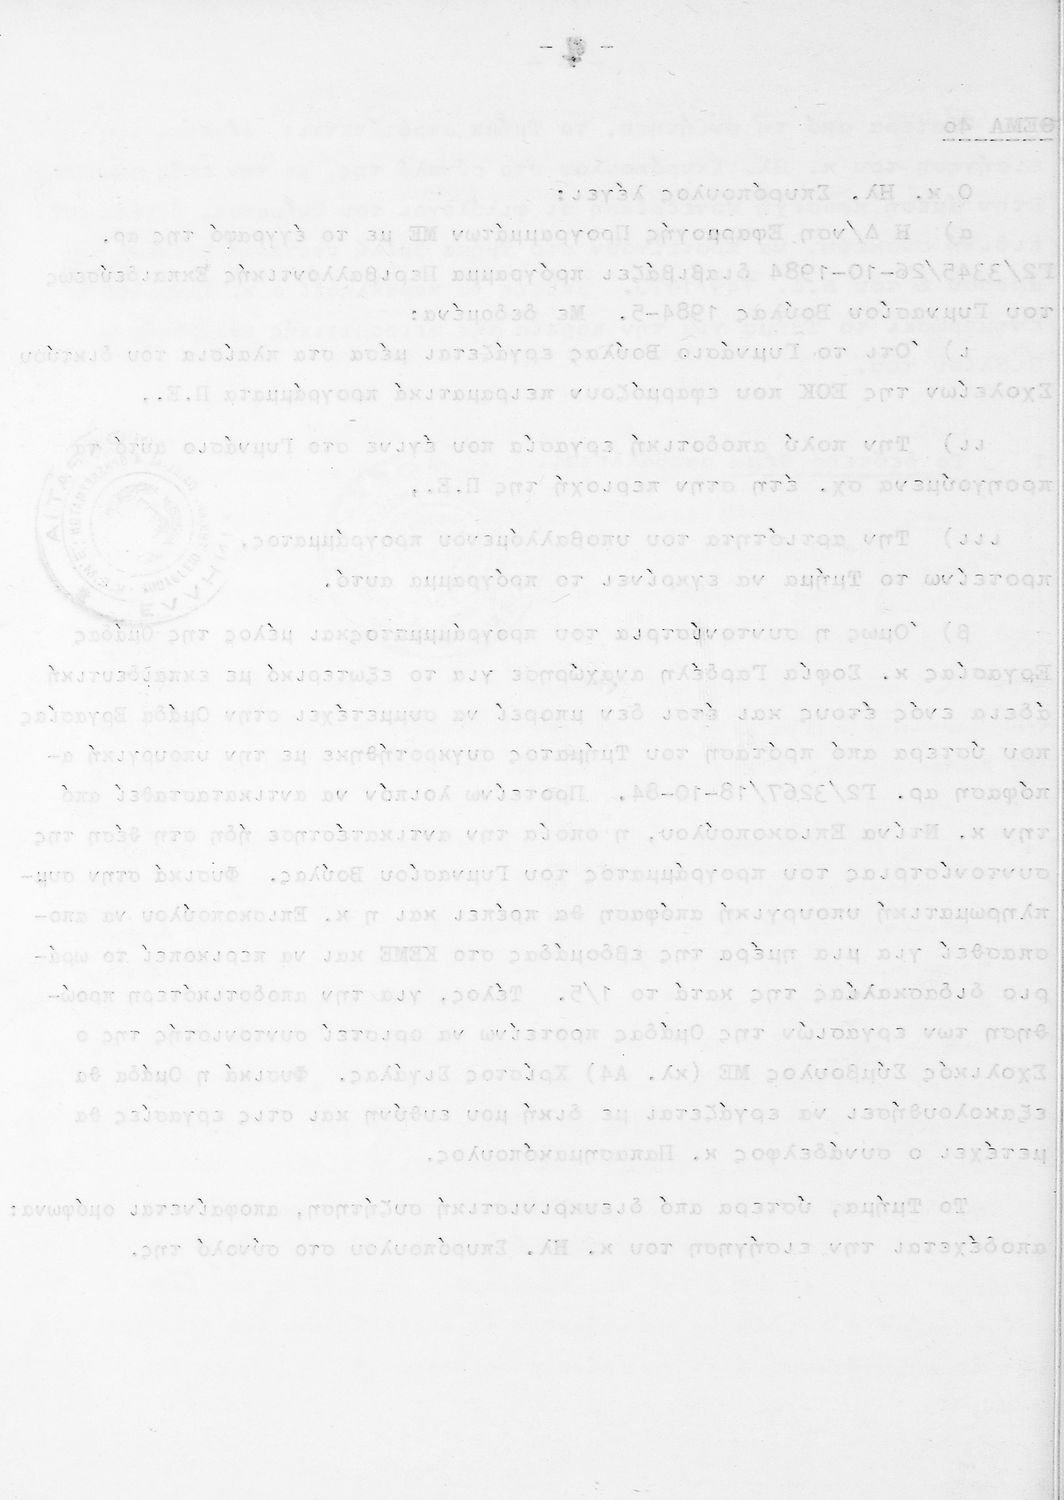 ΘΕΜΑ 4ο
Ο κ. Ηλ. Σπυρόπουλος λέγει:
α) Η Δ/νση Εφαρμογής Προγραμμάτων ΜΕ με το έγγραφό της αρ.
Γ2/3345/26-10-1984 διαβιβάζει πρόγραμμα Περιβαλλοντικής Εκπαιδεύσεως
του Γυμνασίου Βούλας 1984-5. Με δεδομένα:
ι) Ότι το Γυμνάσιο Βούλας εργάζεται μέσα στα πλαίσια του δικτύου
Σχολείων της ΕΟΚ που εφαρμόζουν πειραματικά προγράμματα Π.Ε.,
ιι) Την πολύ αποδοτική εργασία που έγινε στο Γυμνάσιο αυτό τα
προηγούμενα σχ. έτη στην περιοχή της Π.Ε.,
ιιι) Την αρτιότητα του υποβαλλόμενου προγράμματος,
προτείνω το Τμήμα να εγκρίνει το πρόγραμμα αυτό.
β) Όμως η συντονίστρια του προγράμματοςκαι μέλος της Ομάδας
Εργασίας κ. Σοφία Γαρδέλη αναχώρησε για το εξωτερικό με εκπαιδευτική
άδεια ενός έτους και έτσι δεν μπορεί να συμμετέχει στην Ομάδα Εργασίας
που ύστερα από πρόταση του Τμήματος συγκροτήθηκε με την υπουργική α-
πόφαση αρ. Γ2/3267/18-10-84. Προτείνω λοιπόν να αντικατασταθεί από
την κ. Ντίνα Επισκοπούλου, η οποία την αντικατέστησε ήδη στη θέση της
συντονίστριας του προγράμματος του Γυμνασίου Βούλας. Φυσικά στην συμ-
πληρωματική υπουργική απόφαση θα πρέπει και η κ. Επισκοπούλου να απο-
σπασθεί για μια ημέρα της εβδομάδας στο ΚΕΜΕ και να περικοπεί το ωρά-
ριο διδασκαλίας της κατά το 1/5. Τέλος, για την αποδοτικότερη προώ-
θηση των εργασιών της Ομάδας προτείνω να οριστεί συντονιστής της ο
Σχολικός Σύμβουλος ΜΕ (κλ. Α4) Χρίστος Σιγάλας. Φυσικά η Ομάδα θα
εξακολουθήσει να εργάζεται με δική μου ευθύνη και στις εργασίες θα
μετέχει ο συνάδελφος κ. Παπασημακόπουλος.
Το Τμήμα, ύστερα από διευκρινιστική συζήτηση, αποφαίνεται ομόφωνα:
αποδέχεται την εισήγηση του κ. Ηλ. Σπυρόπουλου στο σύνολό της.